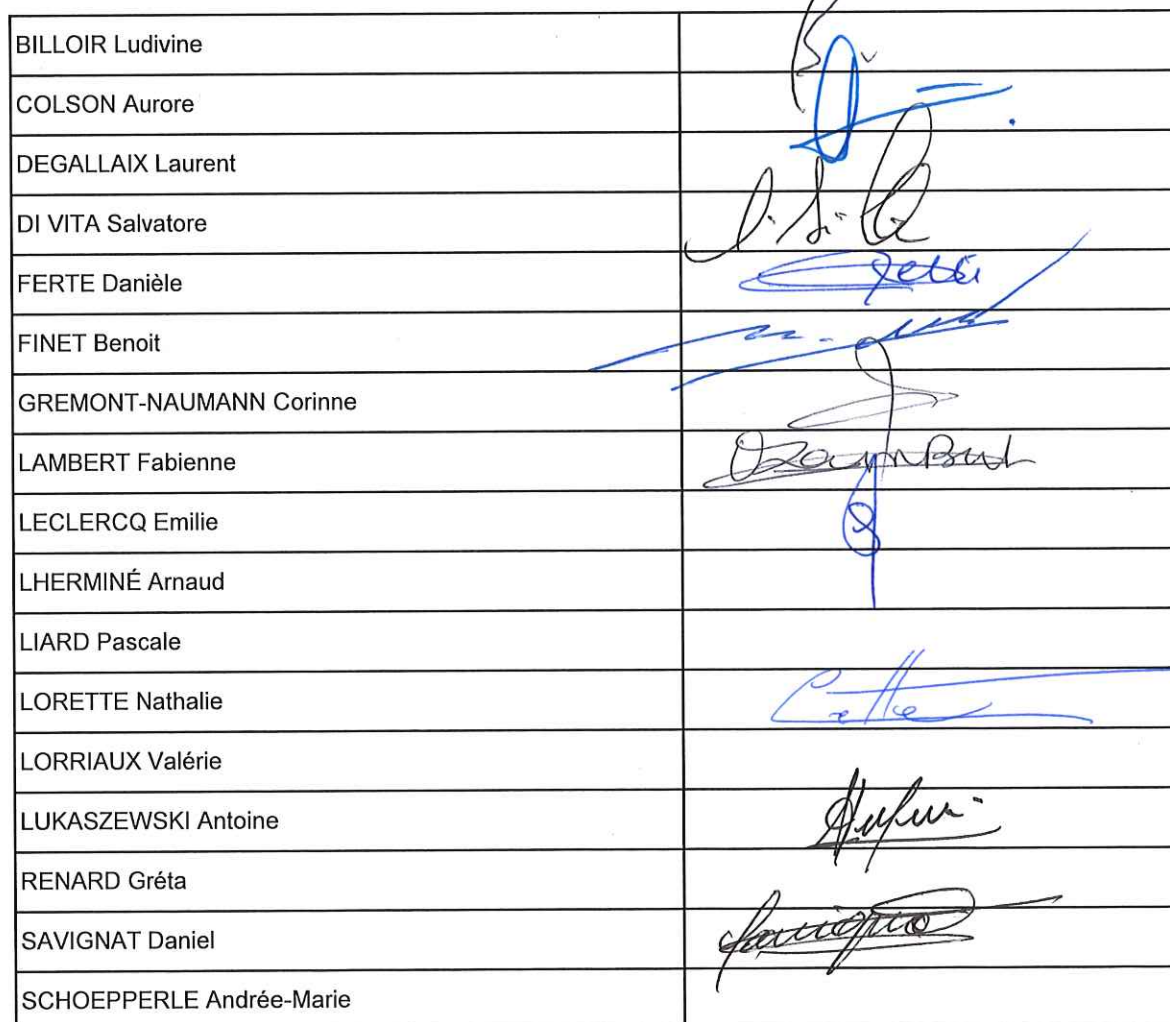 BILLOIR Ludivine
COLSON Aurore
DEGALLAIX Laurent
DI VITA Salvatore
FERTE Danièle
FINET Benoit
GREMONT-NAUMANN Corinne
LAMBERT Fabienne
LECLERCQ Emilie
LHERMINÉ Arnaud
LIARD Pascale
LORETTE Nathalie
LORRIAUX Valérie
LUKASZEWSKI Antoine
RENARD Gréta
SAVIGNAT Daniel
SCHOEPPERLE Andrée-Marie